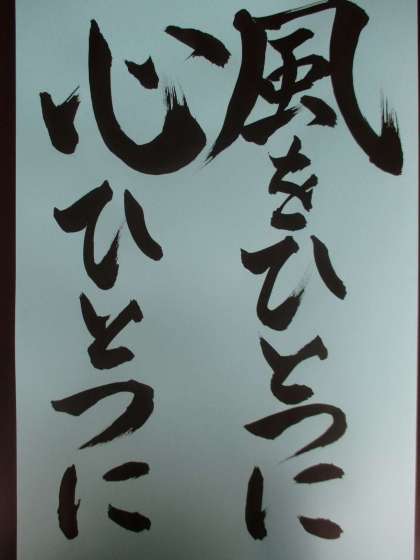 風をひとつに
心ひとつに